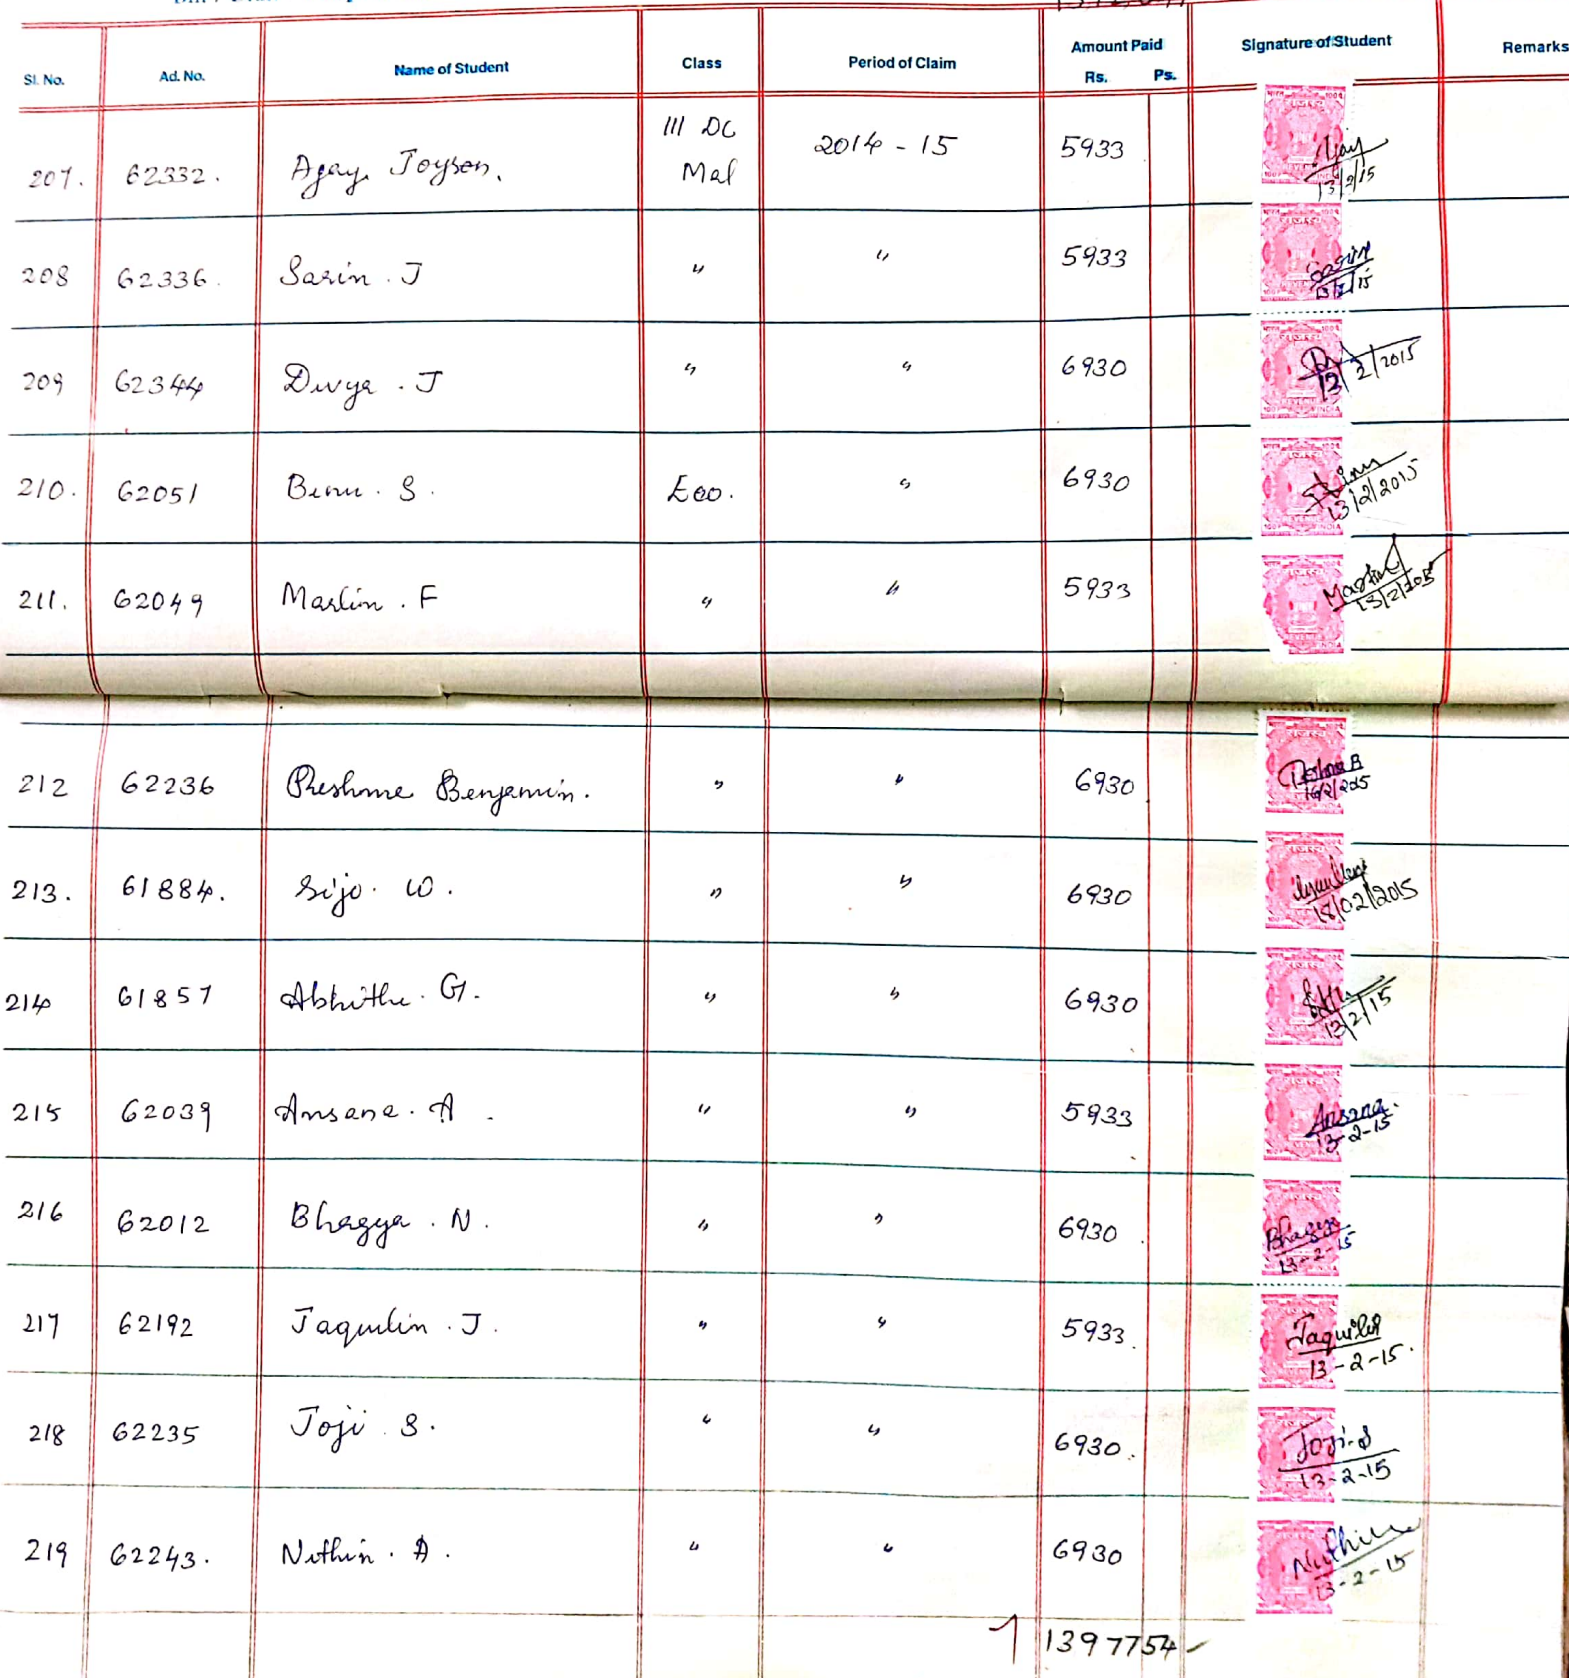 Sl. No. Ad. No. Name of Student Class Period of Claim Amount Paid Rs. Ps. Signature of Student Remarks
207. 62332. Ajay Joyson. III DC Mal 2014 - 15 5933 Ajay 13/2/15
208 62336. Sarin . J " " 5933 Sarin 13/2/15
209 62344 Divya . J " " 6930 13/2/2015
210. 62051 Binu . S . Eco. " 6930 Binu 13/2/2015
211. 62049 Marlin . F " " 5933 13/2/2015
212 62236 Reshma Benjamin. " " 6930 Reshma B 16/2/2015
213. 61884. Sijo . W . " " 6930 18/02/2015
214 61857 Abhitha . G. " " 6930 13/2/15
215 62039 Ansana . A . " " 5933 Ansana. 13-2-15
216 62012 Bhagya . N . " " 6930 Bhagya 13-2-15
217 62192 Jaqulin . J . " " 5933. Jaquilin 13-2-15.
218 62235 Joji S. " " 6930. Joji.S 13-2-15
219 62243. Nithin . A . " " 6930 Nithin 13-2-15
1397754